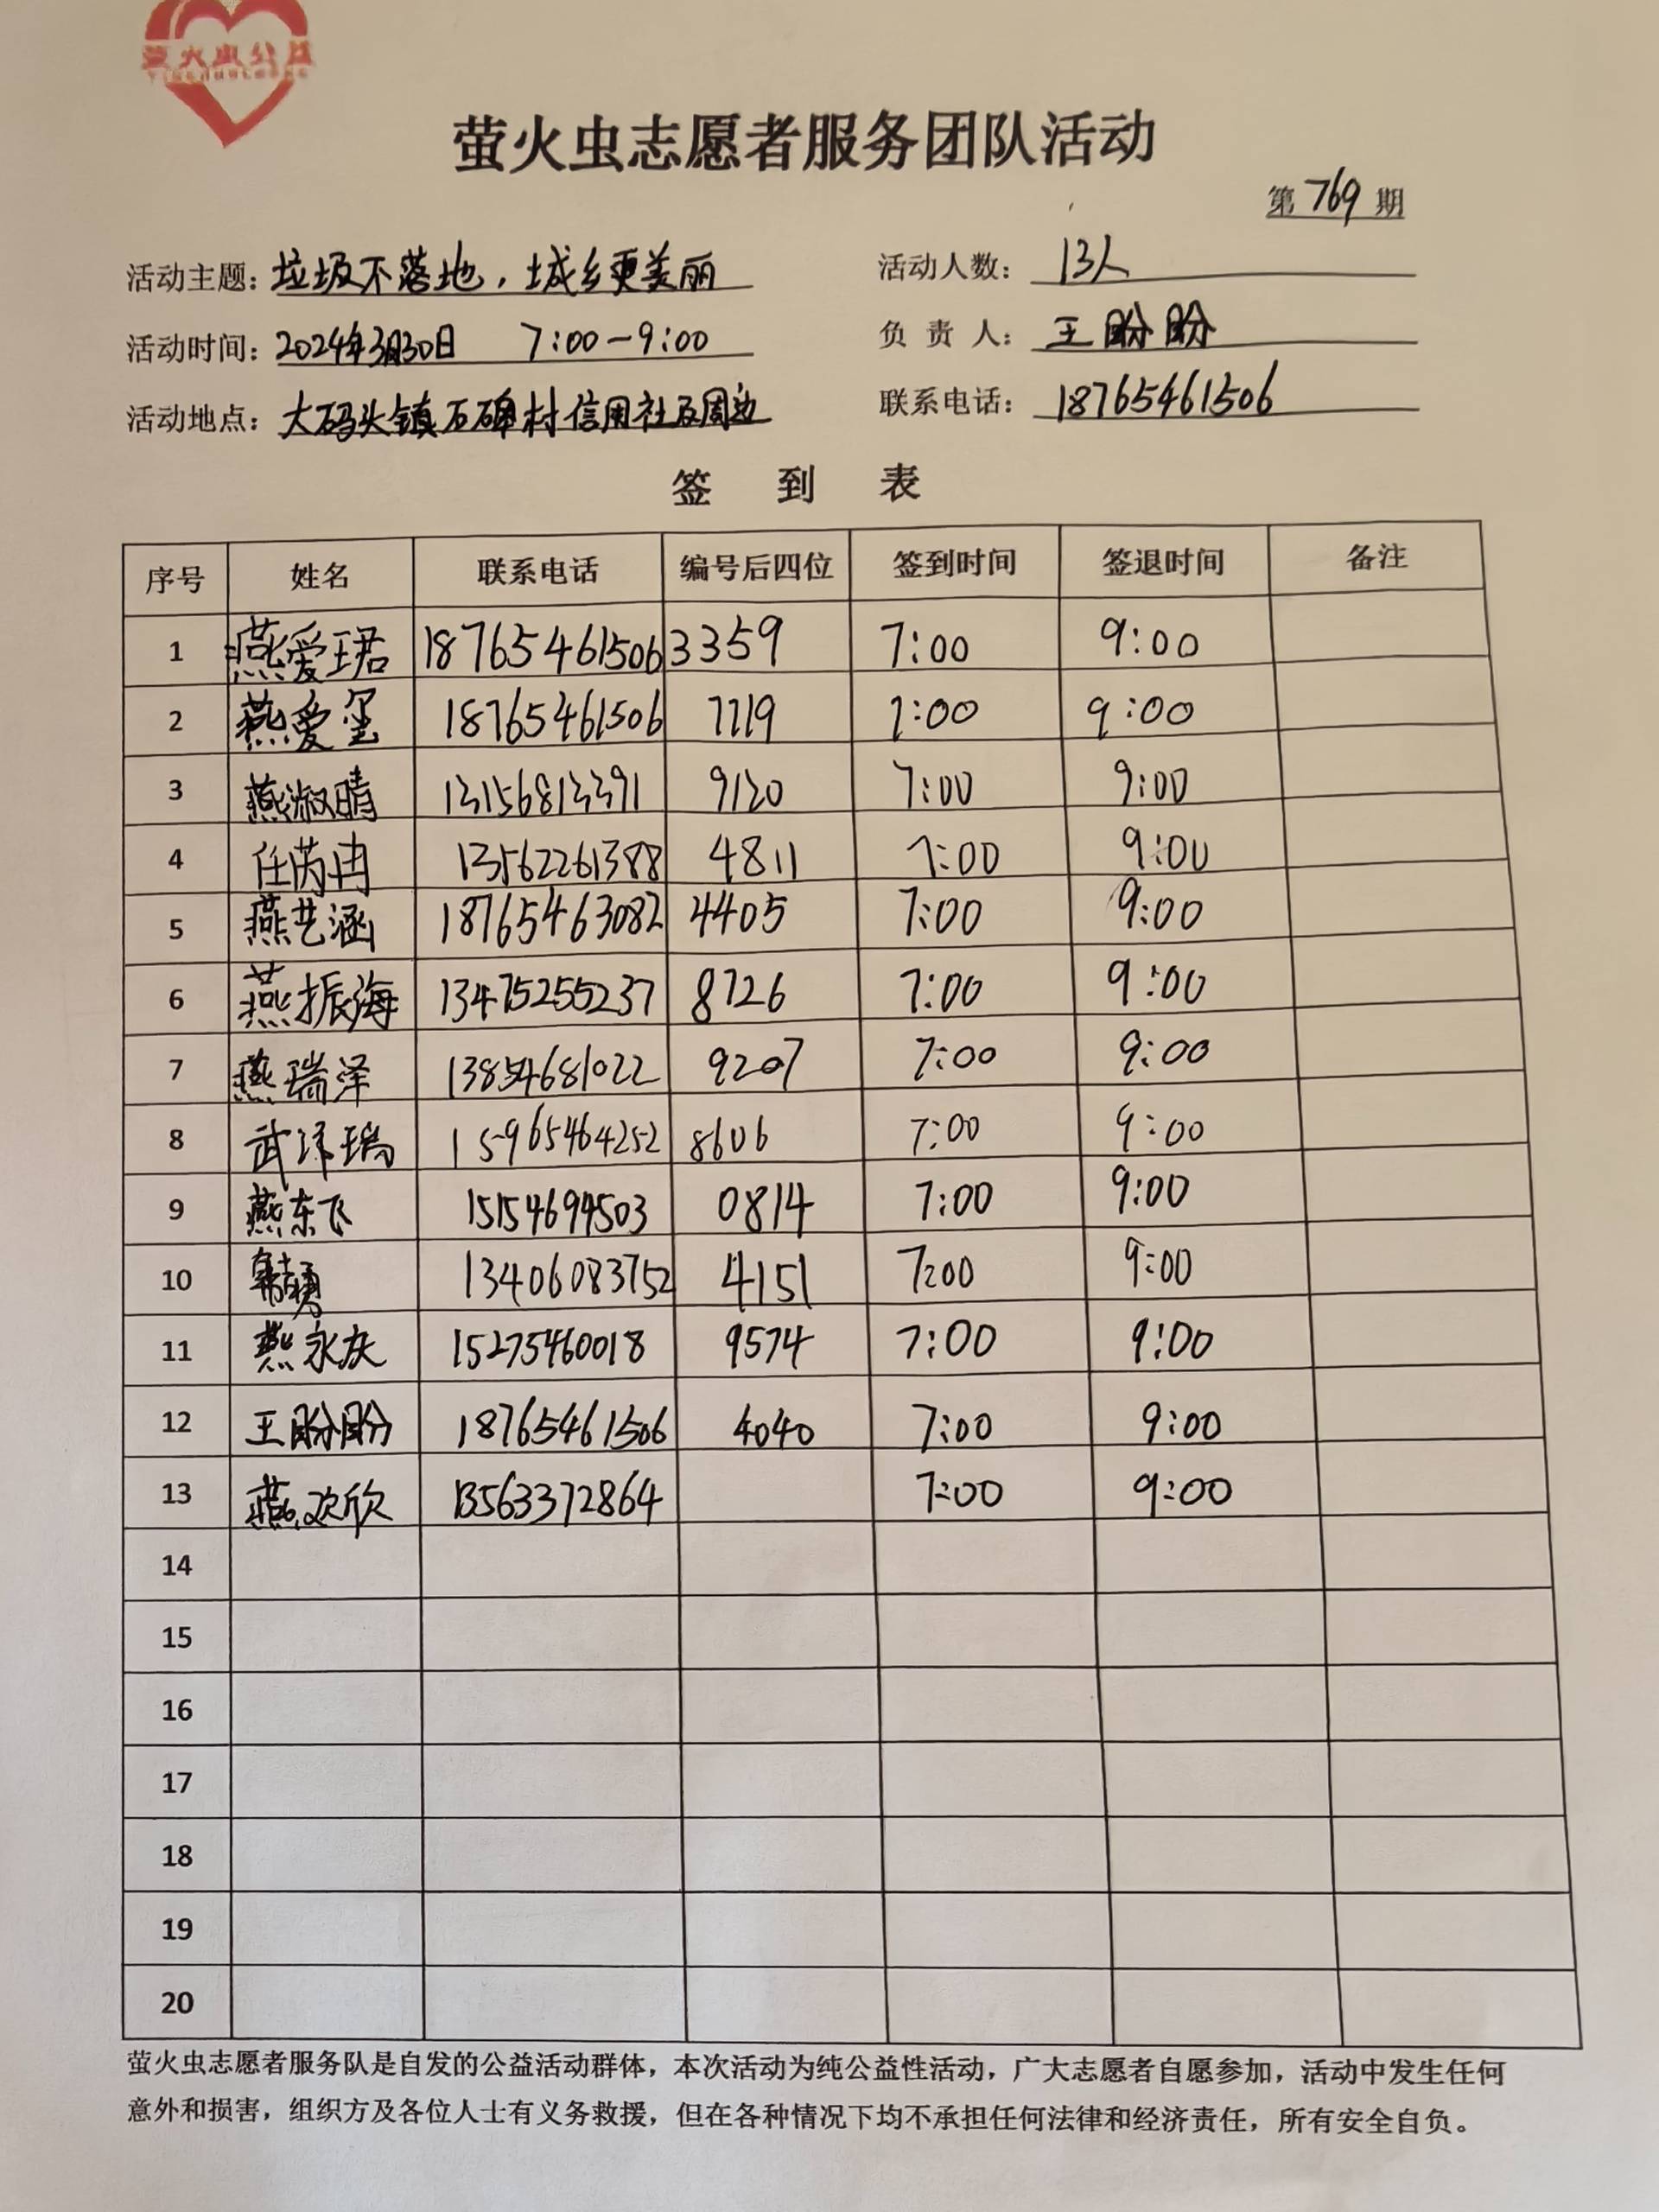 萤火虫公益
YINGHUOCHONG
萤火虫志愿者服务团队活动
第 769 期
活动主题：垃圾不落地，城乡更美丽 活动人数：13人
活动时间：2024年3月30日 7:00-9:00 负责人：王盼盼
活动地点：大码头镇石碑村信用社及周边 联系电话：18765461506
签到表
序号 姓名 联系电话 编号后四位 签到时间 签退时间 备注
1 燕爱珺 18765461506 3359 7:00 9:00
2 燕爱玺 18765461506 7719 7:00 9:00
3 燕淑晴 13156813391 9120 7:00 9:00
4 任芮冉 13562261388 4811 7:00 9:00
5 燕艺涵 18765463082 4405 7:00 9:00
6 燕振海 13475255237 8726 7:00 9:00
7 燕瑞泽 13854681022 9207 7:00 9:00
8 武 瑞 15965464252 8606 7:00 9:00
9 燕东飞 15154694503 0814 7:00 9:00
10 13406083752 4151 7:00 9:00
11 燕永庆 15275460018 9574 7:00 9:00
12 王盼盼 18765461506 4040 7:00 9:00
13 燕欢欣 13563372864 7:00 9:00
14
15
16
17
18
19
20
萤火虫志愿者服务队是自发的公益活动群体，本次活动为纯公益性活动，广大志愿者自愿参加，活动中发生任何
意外和损害，组织方及各位人士有义务救援，但在各种情况下均不承担任何法律和经济责任，所有安全自负。